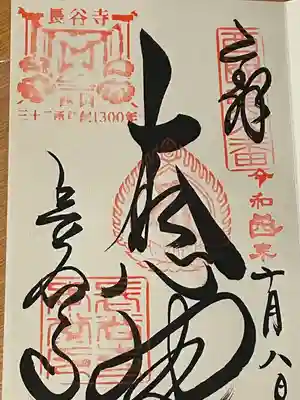 奉拝
令和 年十月八日
大悲閣
長谷寺
長谷寺
西国
三十三所草創1300年